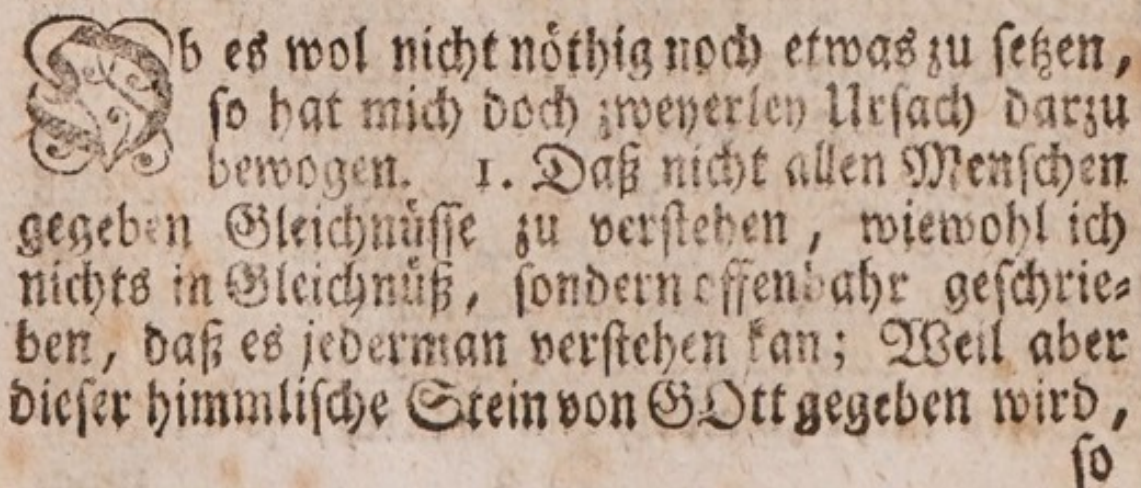 Ob es wol nicht nöthig noch etwas zu ſetzen,
ſo hat mich doch zweyerley Urſach darzu
bewogen. 1. Daß nicht allen Menſchen
gegeben Gleichnüſſe zu verſtehen, wiewohl ich
nichts in Gleichnüß, ſondern offenbahr geſchrie⸗
ben, daß es jederman verſtehen kan; Weil aber
dieſer himmliſche Stein von GOtt gegeben wird,
ſo